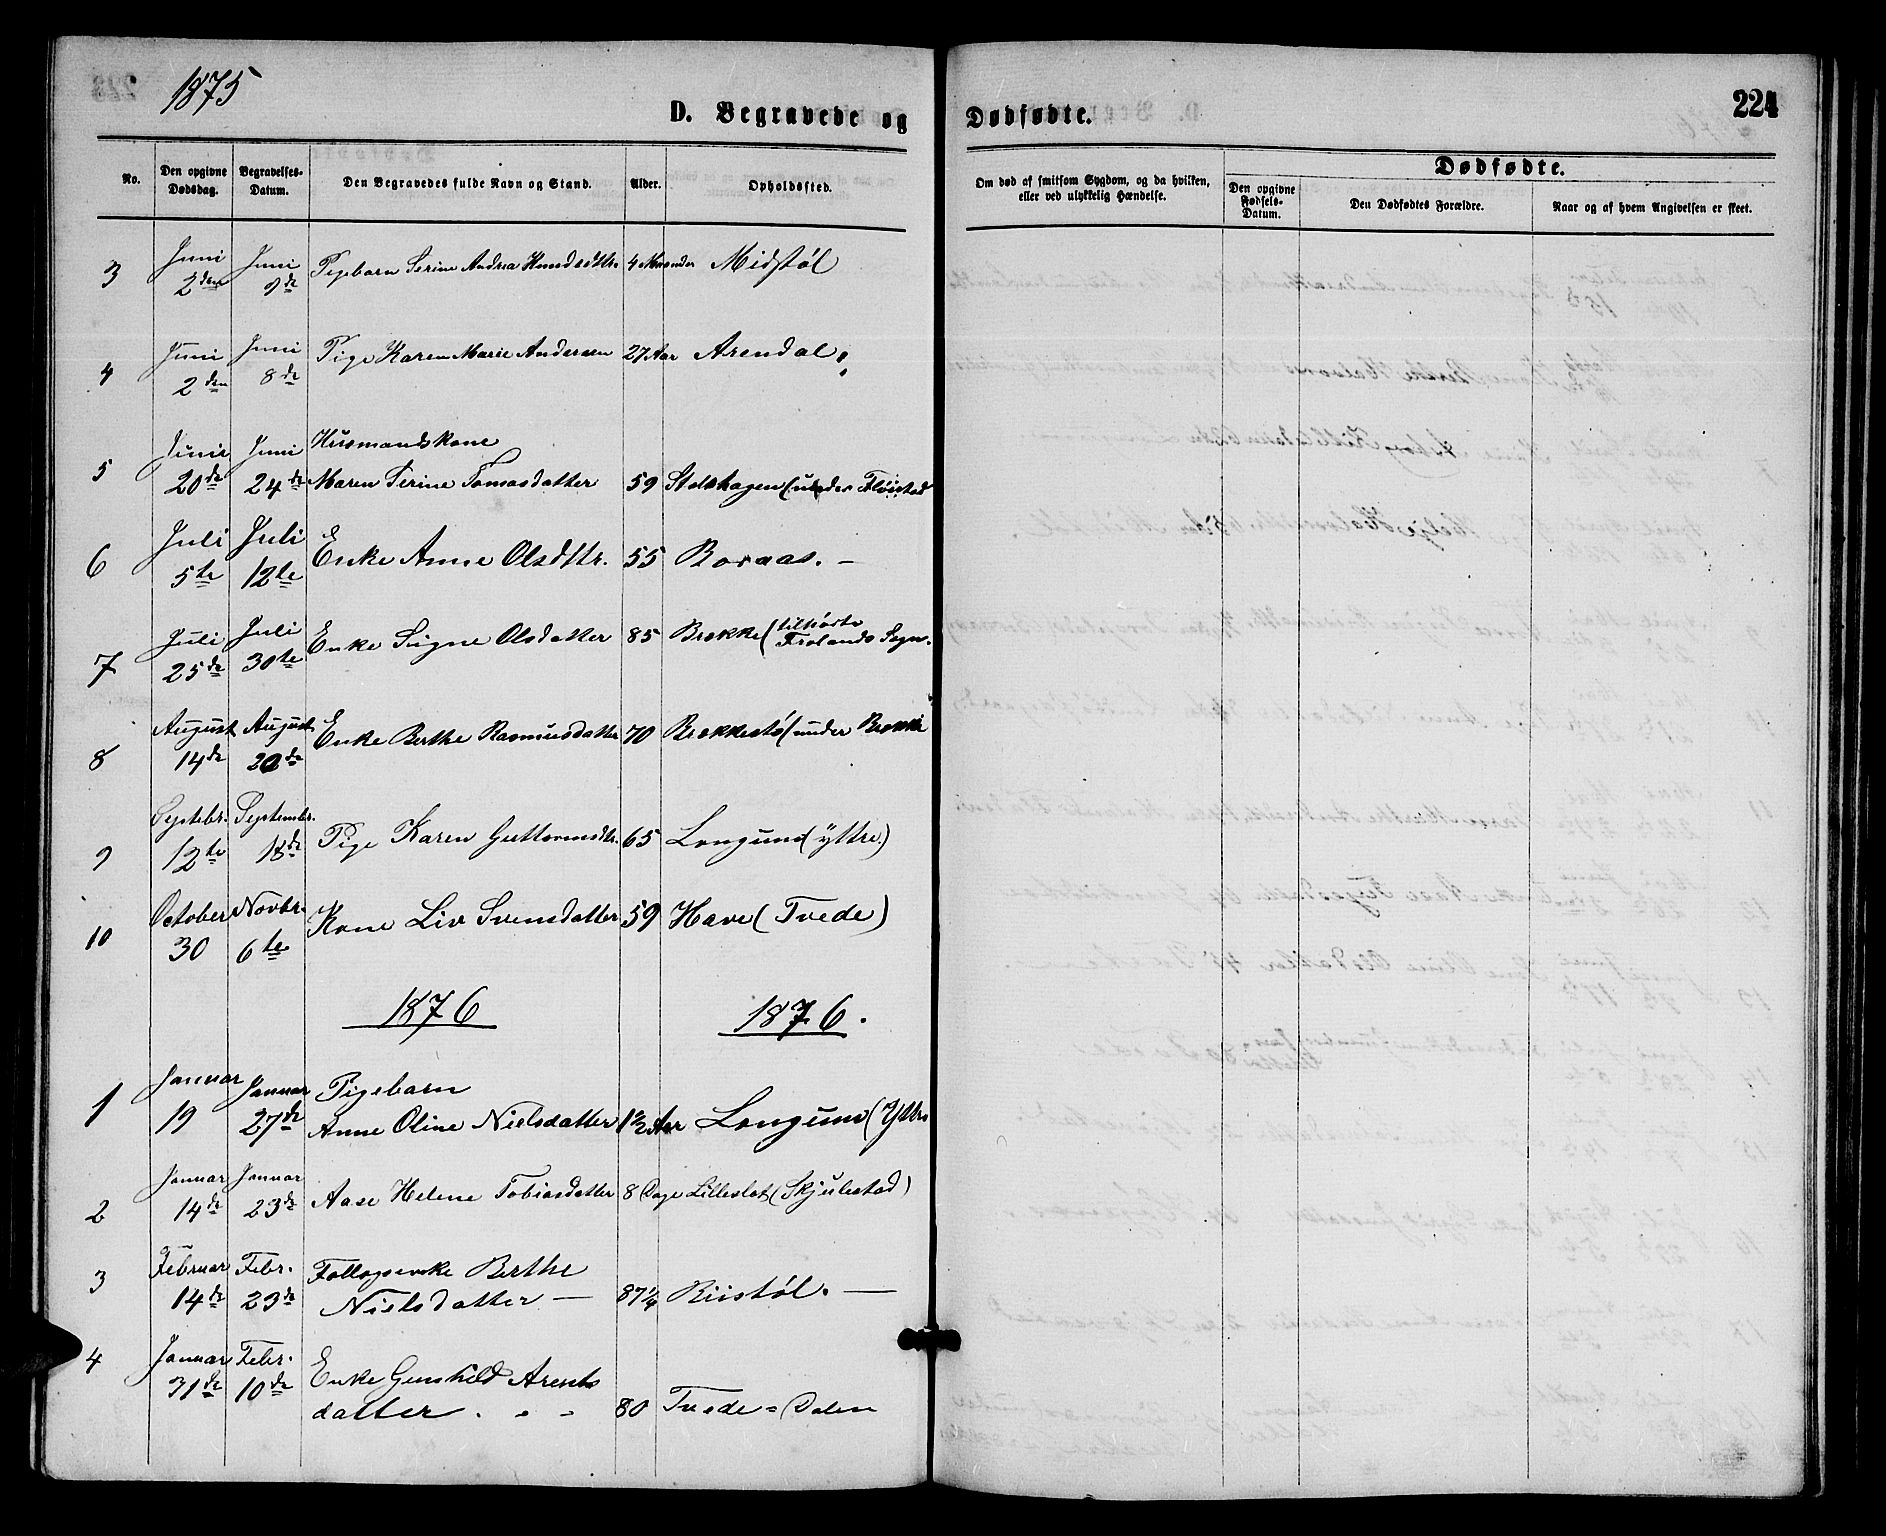 1875
D. Begravede og Dødfødte.
224
No. | Den opgivne Dødsdag. | Begravelses-Datum. | Den Begravedes fulde Navn og Stand. | Alder. | Opholdssted. | Om død af smitsom Sygdom, og da hvilken, eller ved ulykkelig Hændelse. | Dødfødte. | Den opgivne Fødsels-Datum. | Den Dødfødtes Forældre. | Naar og af hvem Angivelsen er skeet.
3 | Juni 2den | Juni 9de | Pigebarn Serine Andrea Knudsdttr. | 4 Maaneder | Midstøl
4 | Juni 2den | Juni 8de | Pige Karen Marie Andersen | 27 Aar | Arendal
5 | Juni 20de | Juni 24de | Husmandskone Maren Serine Tomasdatter | 59 | (under Fløistad
6 | Juli 5te | Juli 12te | Enke Anne Olsdttr. | 55 | Boraas. —
7 | Juli 25de | Juli 30te | Enke Signe Olsdatter | 85 | Brekke (tilhørte Frolands Sogn.
8 | August 14de | August 20de | Enke Berthe Rasmusdatter | 70 | Brekkestø (under Brekke
9 | Septebr. 12te | Septembr. 18de | Pige Karen Guttormsdtr. | 65 | Longum (yttre)
10 | October 30 | Novbr. 6te | Kone Liv Svensdatter | 59 | Have (Tvede)
1876 | 1876.
1 | Januar 19 | Januar 27de | Pigebarn Anne Oline Nielsdatter | 1½ Aar | Longum (Yttre
2 | Januar 14de | Januar 23de | Aase Helene Tobiasdatter | 8 Dage | Lilleslot (Skjulestad)
3 | Februar 14de | Febr. 23de | Berthe Nielsdatter — | 87¼ | Biistøl. —
4 | Januar 31de | Febr. 10de | Enke Gunhild Arentsdatter | 80 | Tvede = Dalen